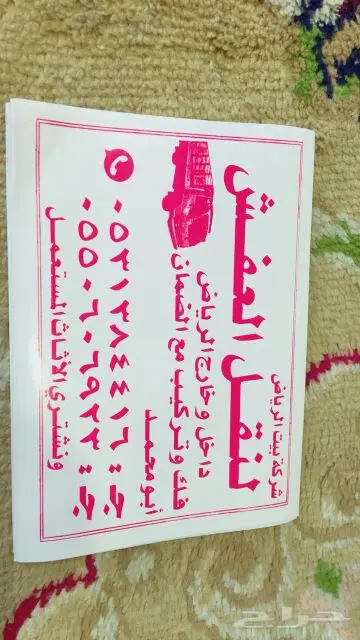 شركة بيت الرياض
لنقل العفش
داخل وخارج الرياض
فك وتركيب مع الضمان
أبو محمد
ج : ٠٥٣١٣٨٤٤١٦
ج : ٠٥٥٠٦٠٦٩٢٣
ونشتري الأثاث المستعمل
حراج